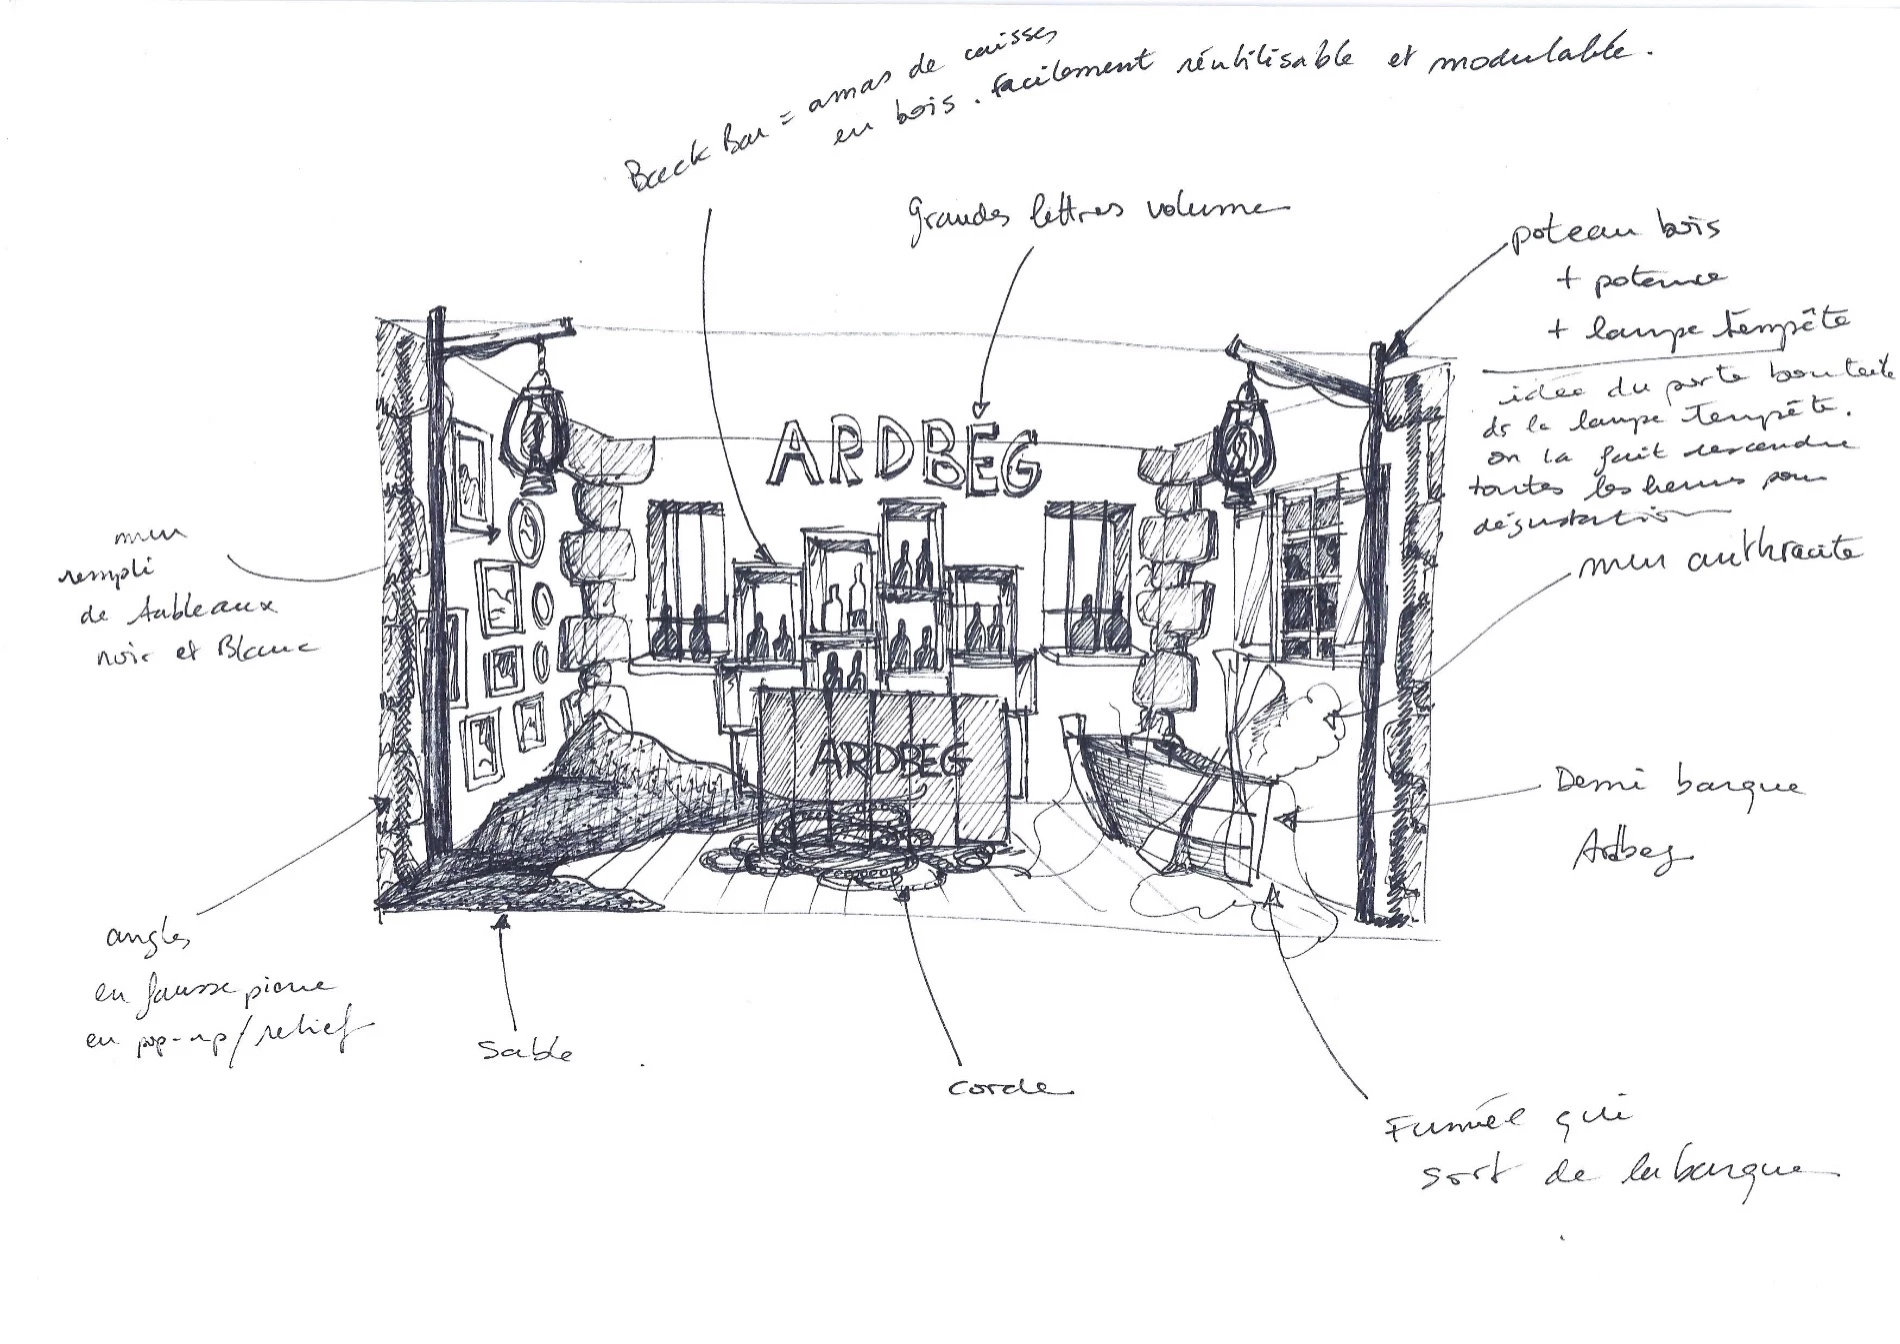 Back Bar = amas de caisses
en bois. facilement réutilisable et modulable.
Grandes lettres volume
poteau bois
+ potence
+ lampe tempête
idée du porte bouteille
ds la lampe tempête.
on la fait descendre
toutes les heures pour
dégustation
mur anthracite
Demi barque
Ardbeg
Fumée qui
sort de la barque
corde
Sable
angles
en fausse pierre
en pop-up/relief
mur
rempli
de tableaux
noir et Blanc
ARDBEG
ARDBEG